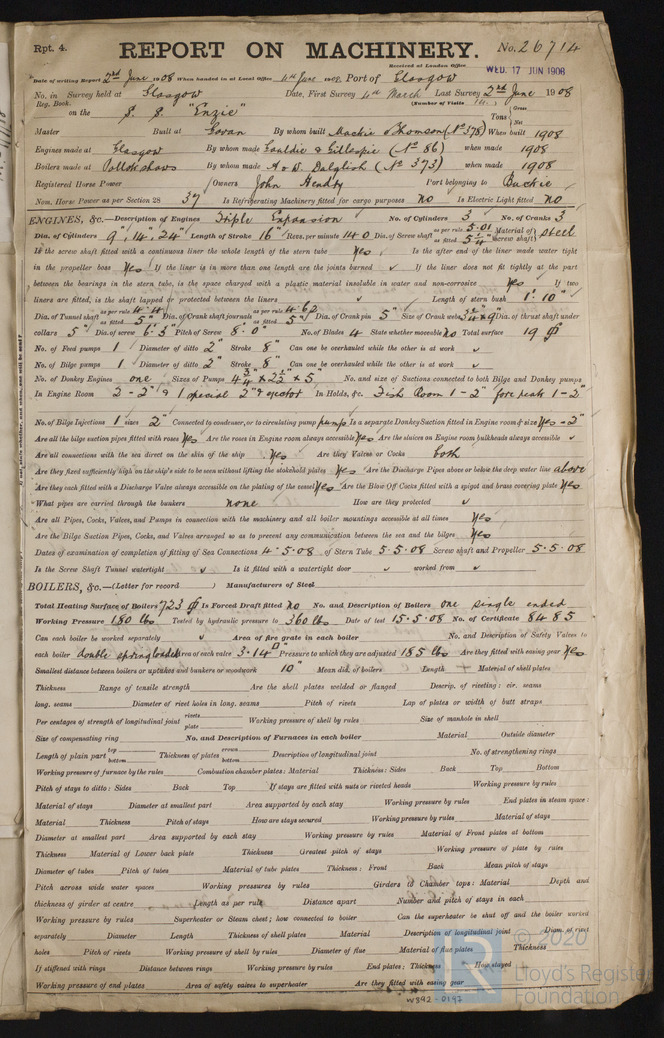 Rpt. 4.
REPORT ON MACHINERY.
No. 26714
Received at London Office WED. 17 JUN 1908
Date of writing Report 2nd June 1908 When handed in at Local Office 4th June 1908 Port of Glasgow
No. in Survey held at Glasgow Date, First Survey 4th March Last Survey 2nd June 1908
Reg. Book. (Number of Visits 14)
on the S. S. "Enzie" Tons { Gross Net
Master Built at Govan By whom built Mackie & Thomson (No 378) When built 1908
Engines made at Glasgow By whom made Gauldie & Gillespie (No 86) when made 1908
Boilers made at Pollokshaws By whom made A & W. Dalglish (No 373) when made 1908
Registered Horse Power Owners John Hendry Port belonging to Buckie
Nom. Horse Power as per Section 28 37 Is Refrigerating Machinery fitted for cargo purposes No Is Electric Light fitted No
ENGINES, &c.—Description of Engines Triple Expansion No. of Cylinders 3 No. of Cranks 3
Dia. of Cylinders 9", 14", 24" Length of Stroke 16" Revs. per minute 140 Dia. of Screw shaft as per rule 5.01 as fitted 5 1/4" Material of screw shaft } Steel
Is the screw shaft fitted with a continuous liner the whole length of the stern tube Yes Is the after end of the liner made water tight
in the propeller boss Yes If the liner is in more than one length are the joints burned ✓ If the liner does not fit tightly at the part
between the bearings in the stern tube, is the space charged with a plastic material insoluble in water and non-corrosive Yes If two
liners are fitted, is the shaft lapped or protected between the liners ✓ Length of stern bush 1' 10"
Dia. of Tunnel shaft as per rule 4.41 as fitted 5" Dia. of Crank shaft journals as per rule 4.62 as fitted 5" Dia. of Crank pin 5" Size of Crank webs 3 1/4" x 9" Dia. of thrust shaft under
collars 5" Dia. of screw 6'. 3" Pitch of Screw 8'. 0" No. of Blades 4 State whether moveable No Total surface 19
No. of Feed pumps 1 Diameter of ditto 2" Stroke 8" Can one be overhauled while the other is at work ✓
No. of Bilge pumps 1 Diameter of ditto 2" Stroke 8" Can one be overhauled while the other is at work ✓
No. of Donkey Engines one Sizes of Pumps 4 3/4" x 2 1/2" x 5" No. and size of Suctions connected to both Bilge and Donkey pumps
In Engine Room 2 - 2" & 1 special 2" ejector In Holds, &c. Fish Room 1 - 2" fore peak 1 - 2"
No. of Bilge Injections 1 sizes 2" Connected to condenser, or to circulating pump pump Is a separate Donkey Suction fitted in Engine room & size Yes - 2"
Are all the bilge suction pipes fitted with roses Yes Are the roses in Engine room always accessible Yes Are the sluices on Engine room bulkheads always accessible ✓
Are all connections with the sea direct on the skin of the ship Yes Are they Valves or Cocks both
Are they fixed sufficiently high on the ship's side to be seen without lifting the stokehold plates Yes Are the Discharge Pipes above or below the deep water line above
Are they each fitted with a Discharge Valve always accessible on the plating of the vessel Yes Are the Blow Off Cocks fitted with a spigot and brass covering plate Yes
What pipes are carried through the bunkers none How are they protected ✓
Are all Pipes, Cocks, Valves, and Pumps in connection with the machinery and all boiler mountings accessible at all times Yes
Are the Bilge Suction Pipes, Cocks, and Valves arranged so as to prevent any communication between the sea and the bilges Yes
Dates of examination of completion of fitting of Sea Connections 4.5.08 of Stern Tube 5.5.08 Screw shaft and Propeller 5.5.08
Is the Screw Shaft Tunnel watertight ✓ Is it fitted with a watertight door ✓ worked from ✓
BOILERS, &c.—(Letter for record ) Manufacturers of Steel
Total Heating Surface of Boilers 723 Is Forced Draft fitted no No. and Description of Boilers one single ended
Working Pressure 180 lbs Tested by hydraulic pressure to 360 lbs Date of test 15.5.08 No. of Certificate 8485
Can each boiler be worked separately ✓ Area of fire grate in each boiler No. and Description of Safety Valves to
each boiler double spring loaded Area of each valve 3.14 Pressure to which they are adjusted 185 lbs Are they fitted with easing gear Yes
Smallest distance between boilers or uptakes and bunkers or woodwork 10" Mean dia. of boilers Length Material of shell plates
Thickness Range of tensile strength Are the shell plates welded or flanged Descrip. of riveting: cir. seams
long. seams Diameter of rivet holes in long. seams Pitch of rivets Lap of plates or width of butt straps
Per centages of strength of longitudinal joint rivets plate Working pressure of shell by rules Size of manhole in shell
Size of compensating ring No. and Description of Furnaces in each boiler Material Outside diameter
Length of plain part top bottom Thickness of plates crown bottom Description of longitudinal joint No. of strengthening rings
Working pressure of furnace by the rules Combustion chamber plates: Material Thickness: Sides Back Top Bottom
Pitch of stays to ditto: Sides Back Top If stays are fitted with nuts or riveted heads Working pressure by rules
Material of stays Diameter at smallest part Area supported by each stay Working pressure by rules End plates in steam space:
Material Thickness Pitch of stays How are stays secured Working pressure by rules Material of stays
Diameter at smallest part Area supported by each stay Working pressure by rules Material of Front plates at bottom
Thickness Material of Lower back plate Thickness Greatest pitch of stays Working pressure of plate by rules
Diameter of tubes Pitch of tubes Material of tube plates Thickness: Front Back Mean pitch of stays
Pitch across wide water spaces Working pressures by rules Girders to Chamber tops: Material Depth and
thickness of girder at centre Length as per rule Distance apart Number and pitch of stays in each
Working pressure by rules Superheater or Steam chest; how connected to boiler Can the superheater be shut off and the boiler worked
separately Diameter Length Thickness of shell plates Material Description of longitudinal joint Diam. of rivet
holes Pitch of rivets Working pressure of shell by rules Diameter of flue Material of flue plates Thickness
If stiffened with rings Distance between rings Working pressure by rules End plates: Thickness How stayed
Working pressure of end plates Area of safety valves to superheater Are they fitted with easing gear
W892-0197
© 2020
Lloyd's Register
Foundation